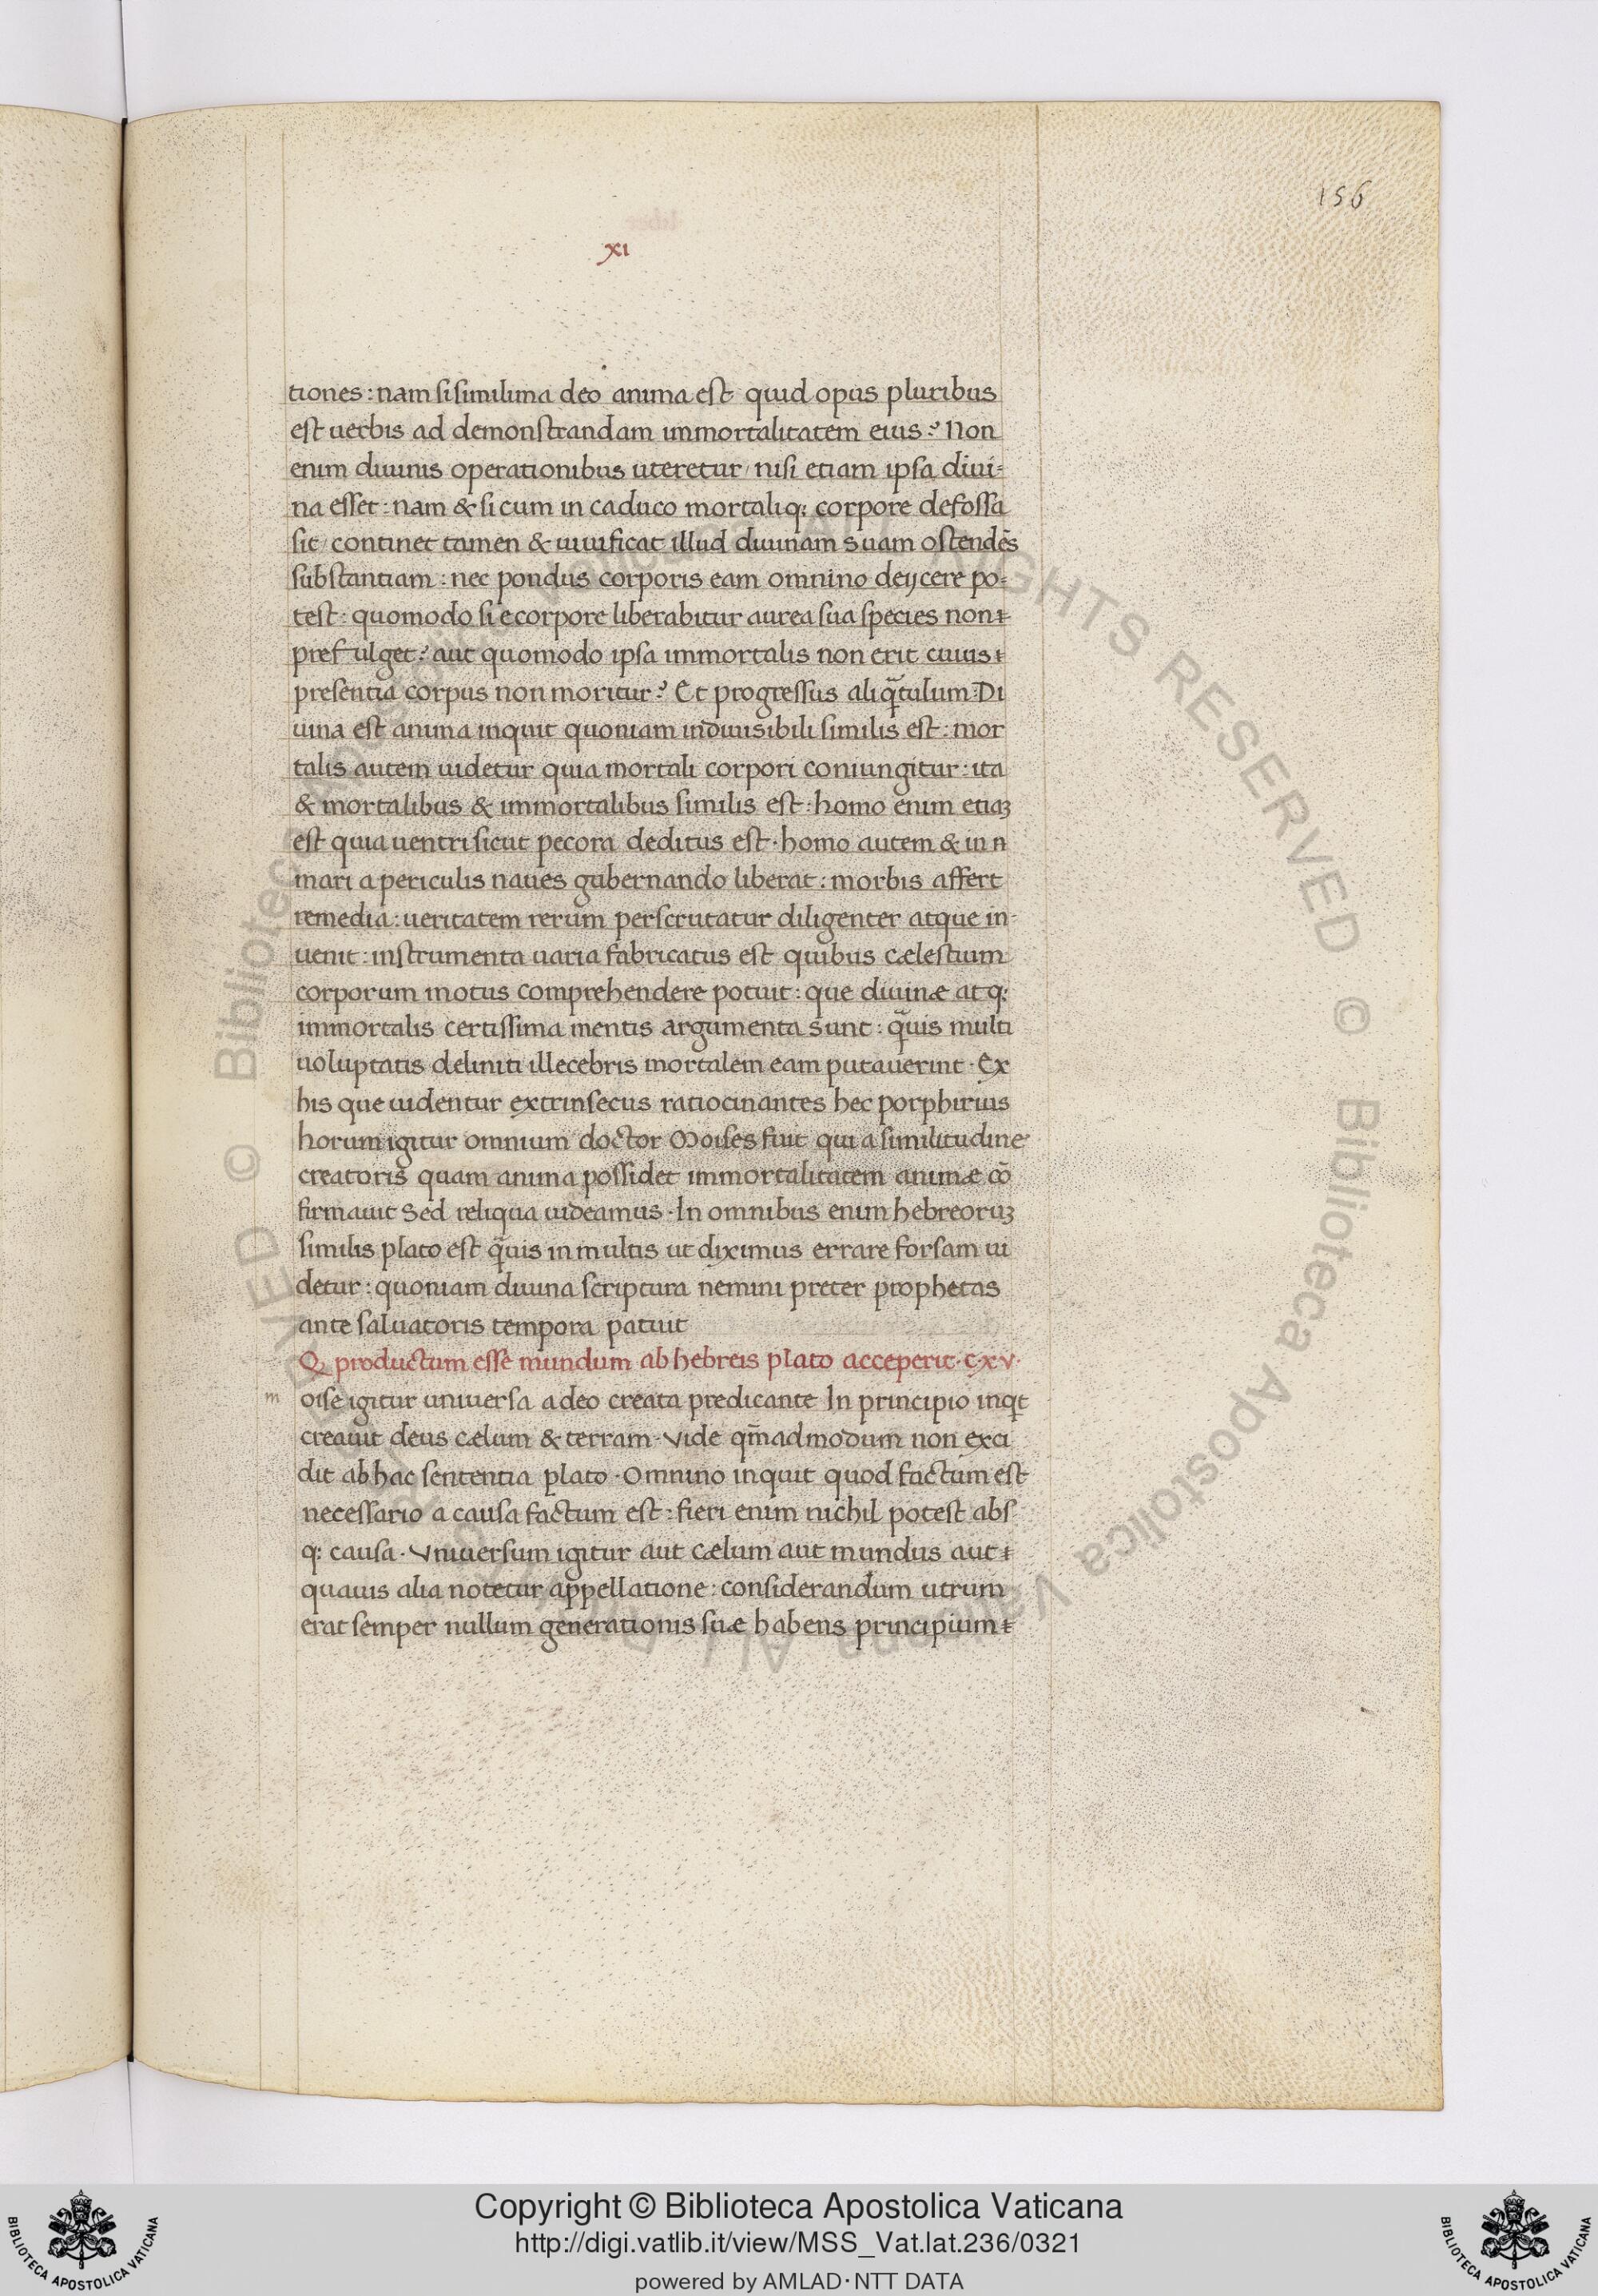 156
xi
tiones : nam si similima deo anima est quid opus pluribus
est uerbis ad demonstrandam immortalitatem eius ? Non
enim diuinis operationibus uteretur / nisi etiam ipsa diui-
na esset : nam & si cum in caduco mortaliq; corpore defossa
sit / continet tamen & uiuificat illud diuinam suam ostendēs
substantiam : nec pondus corporis eam omnino deijcere po-
test : quomodo si e corpore liberabitur aurea sua species non
prefulget ? aut quomodo ipsa immortalis non erit cuius
presentia corpus non moritur ? Et progressus aliq̄tulum : Di
uina est anima inquit quoniam indiuisibili similis est : mor
talis autem uidetur quia mortali corpori coniungitur : ita
& mortalibus & immortalibus similis est : homo enim etiaꝫ
est quia uentri sicut pecora deditus est · homo autem & in n
mari a periculis naues gubernando liberat : morbis affert
remedia : ueritatem rerum perscrutatur diligenter atque in-
uenit : instrumenta uaria fabricatus est quibus cælestium
corporum motus comprehendere potuit : que diuinæ atq;
immortalis certissima mentis argumenta sunt : q̄uis multi
uoluptatis deliniti illecebris mortalem eam putauerint · Ex
his que uidentur extrinsecus ratiocinantes hec porphirius
horum igitur omnium doctor Moises fuit qui a similitudine
creatoris quam anima possidet immortalitatem animæ cō
firmauit Sed reliqua uideamus · In omnibus enim hebreoruꝫ
similis plato est q̄uis in multis ut diximus errare forsam ui
detur : quoniam diuina scriptura nemini preter prophetas
ante saluatoris tempora patuit
Q productum esse mundum ab hebreis plato acceperit · c · xv ·
m oise igitur uniuersa a deo creata predicante In principio inqt
creauit deus cælum & terram · Vide qm̄admodum non exci
dit ab hac sententia plato · Omnino inquit quod factum est
necessario a causa factum est : fieri enim nichil potest abs
q; causa · Vniuersum igitur aut cælum aut mundus aut
quauis alia notetur appellatione : considerandum utrum
erat semper nullum generationis suæ habens principium
Copyright © Biblioteca Apostolica Vaticana
http://digi.vatlib.it/view/MSS_Vat.lat.236/0321
powered by AMLAD·NTT DATA
BIBLIOTECA APOSTOLICA VATICANA
BIBLIOTECA APOSTOLICA VATICANA